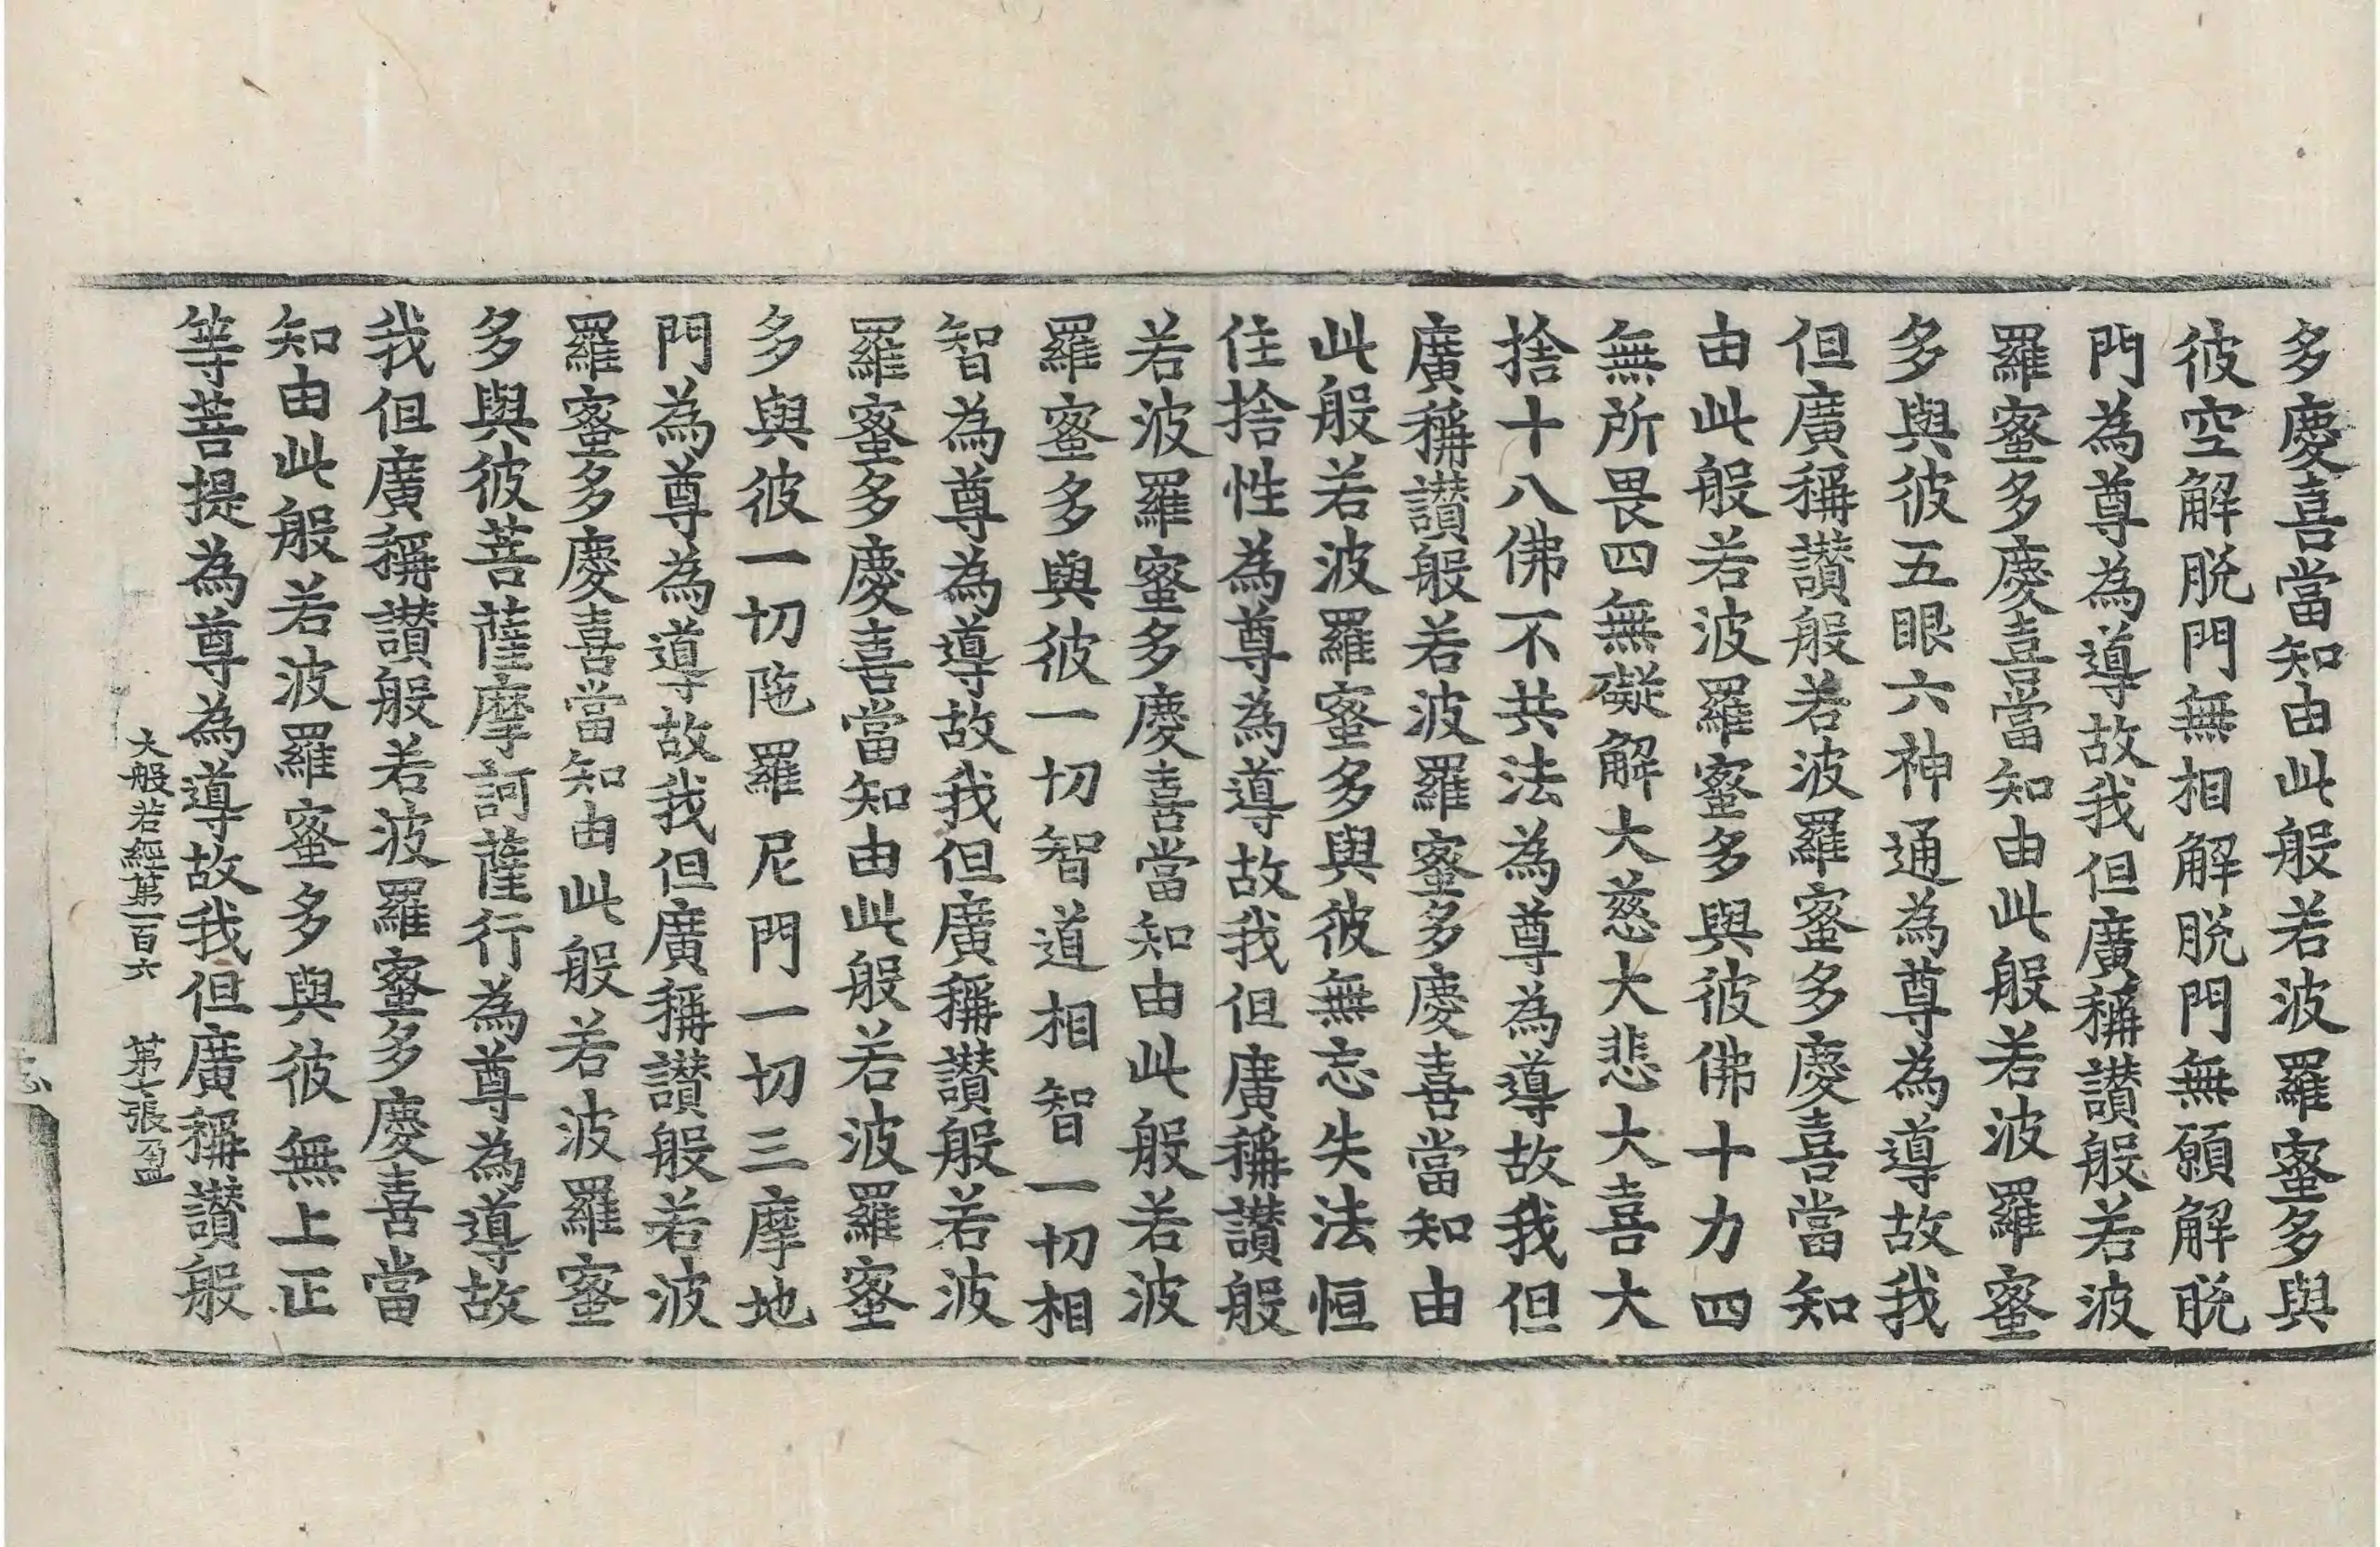 多慶喜當知由此般若波羅蜜多與
彼空解脫門無相解脫門無願解脫
門為尊為導故我但廣稱讃般若波
羅蜜多慶喜當知由此般若波羅蜜
多與彼五眼六神通為尊為導故我
但廣稱讃般若波羅蜜多慶喜當知
由此般若波羅蜜多與彼佛十力四
無所畏四無礙解大慈大悲大喜大
捨十八佛不共法為尊為導故我但
廣稱讃般若波羅蜜多慶喜當知由
此般若波羅蜜多與彼無忘失法恒
住捨性為尊為導故我但廣稱讃般
若波羅蜜多慶喜當知由此般若波
羅蜜多與彼一切智道相智一切相
智為尊為導故我但廣稱讃般若波
羅蜜多慶喜當知由此般若波羅蜜
多與彼一切陁羅尼門一切三摩地
門為尊為導故我但廣稱讃般若波
羅蜜多慶喜當知由此般若波羅蜜
多與彼菩薩摩訶薩行為尊為導故
我但廣稱讃般若波羅蜜多慶喜當
知由此般若波羅蜜多與彼無上正
等菩提為尊為導故我但廣稱讃般
大般若經第一百六 第七張 盈